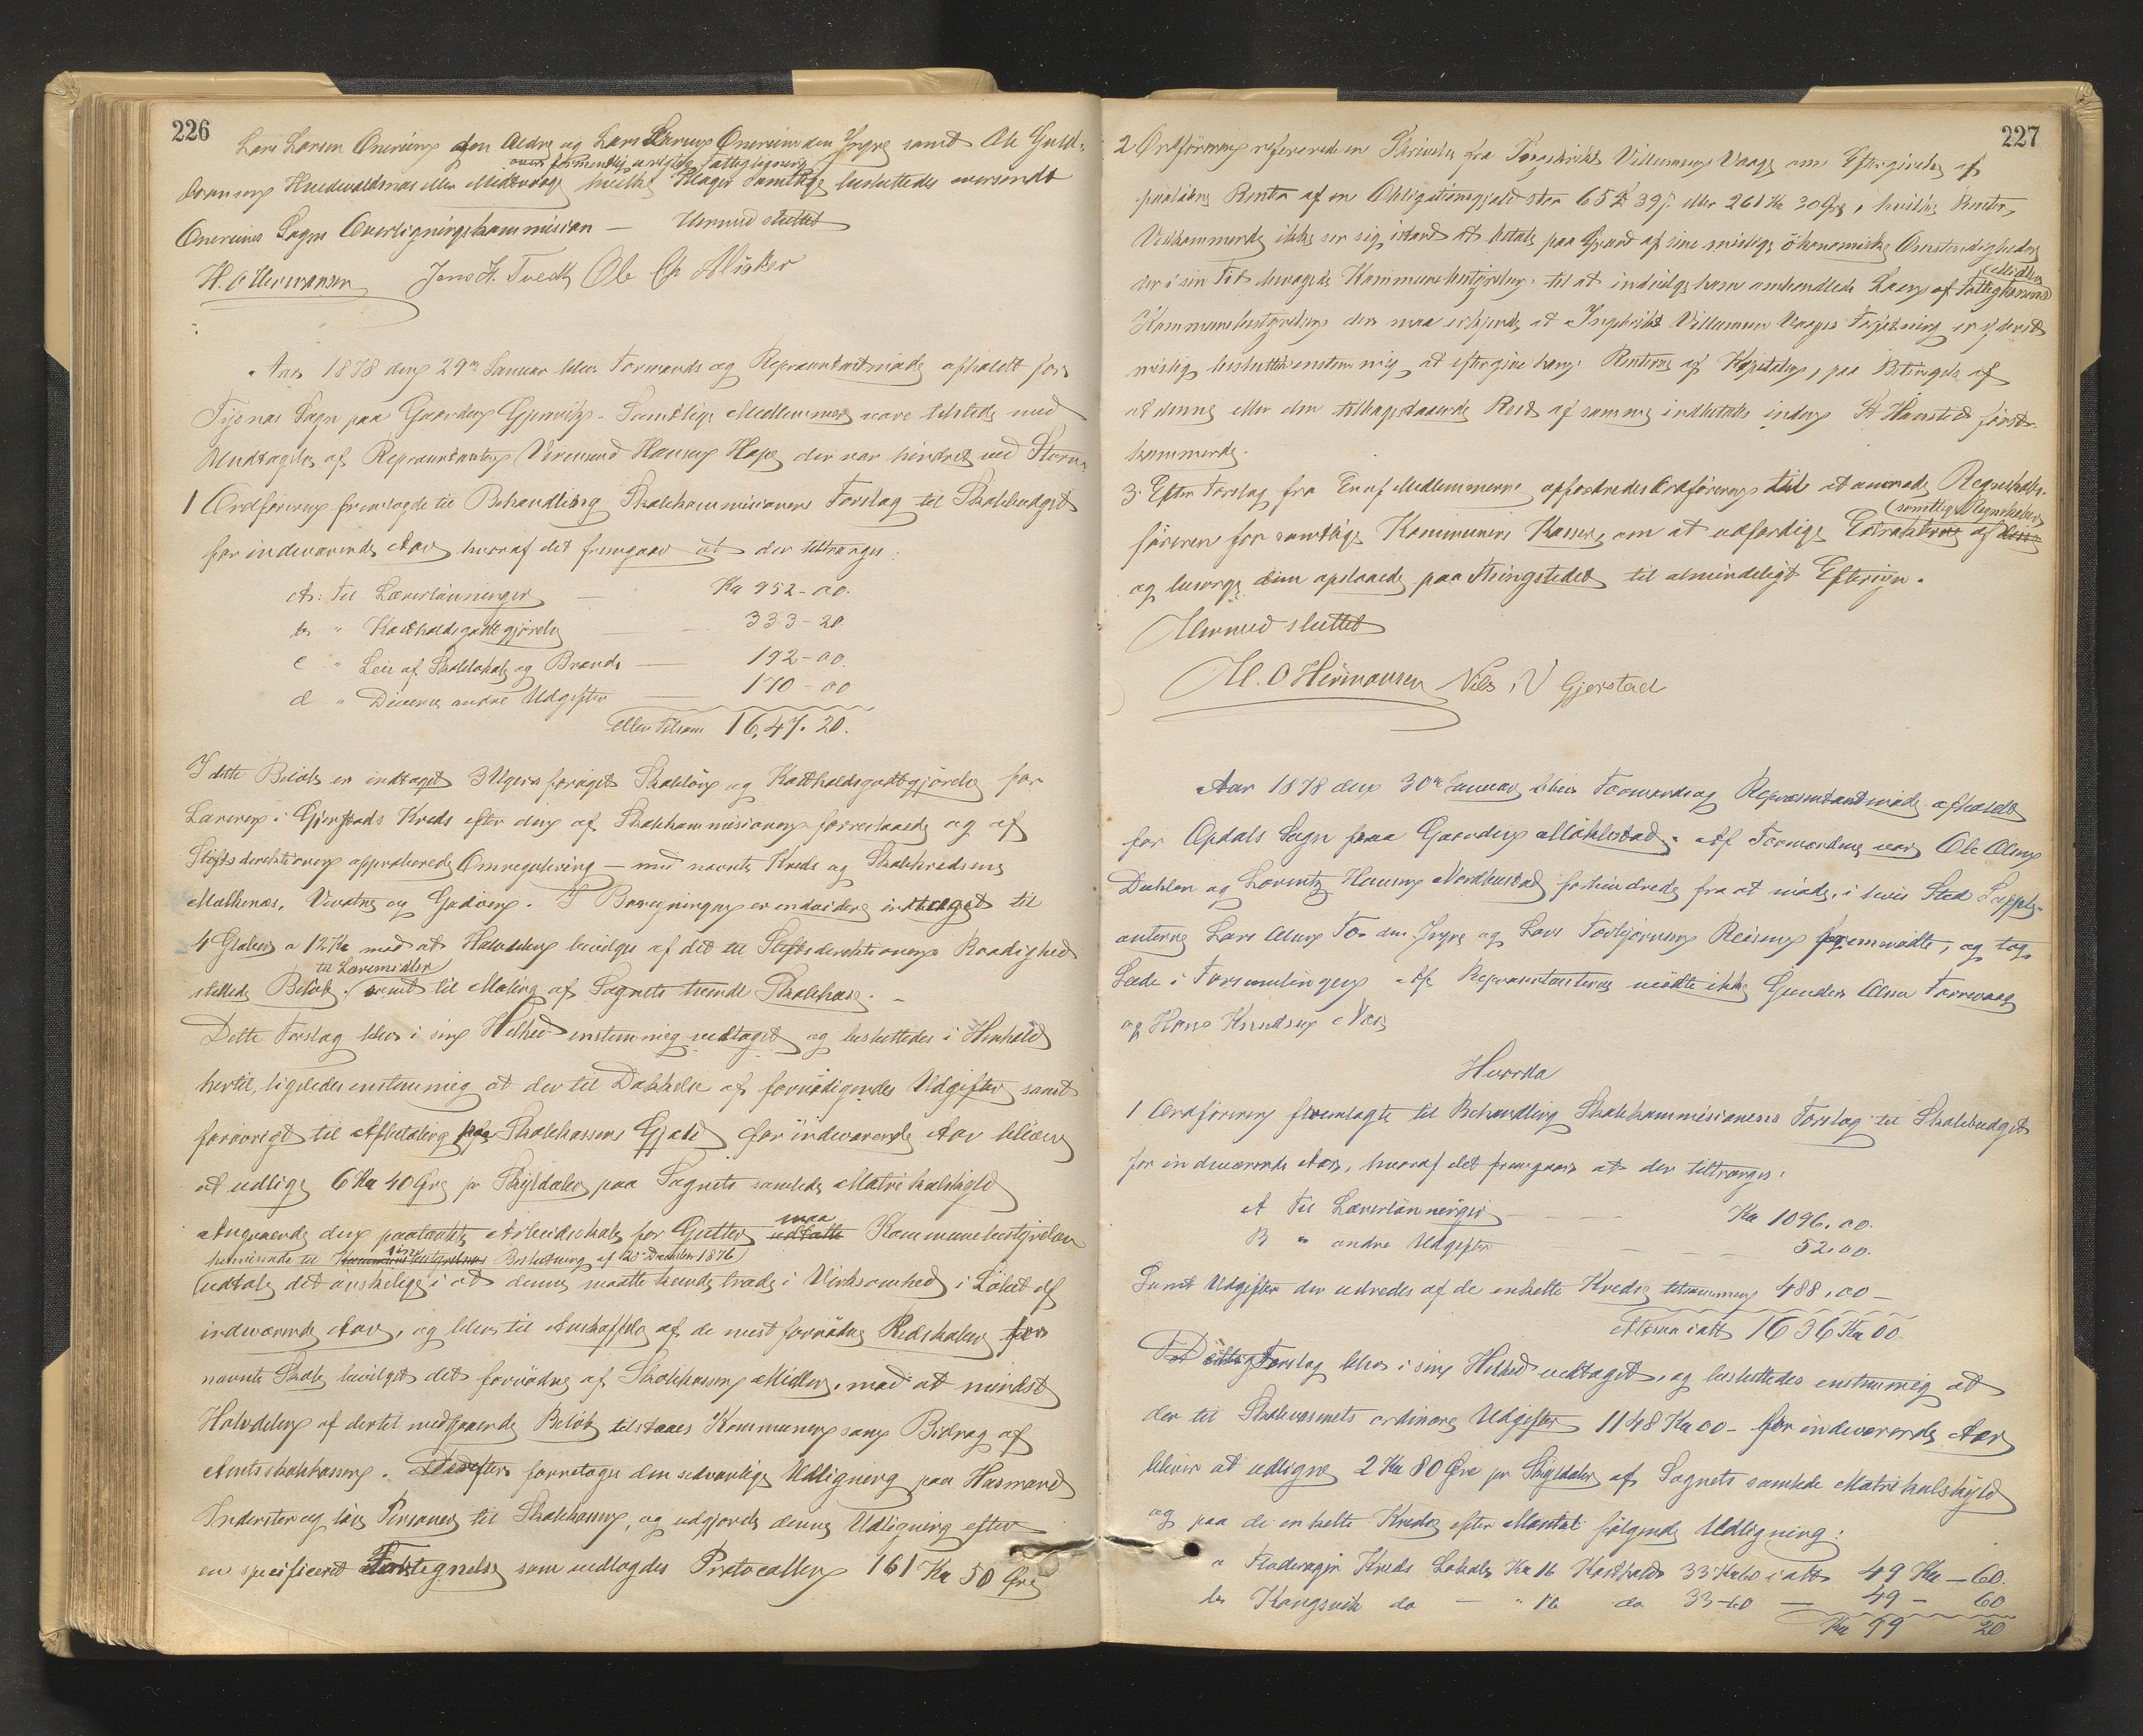 226
Lars Larsen Onereim den Ældre og Lars Larsen Onereim den Yngre samt Ole Guld-
over formentlig uretfetig Fattigligning
bransen Hundvaldsnæs eller Midtvaage hvilke Klager samtlige besluttedes oversendt
Onereims Sogns Overligningskommission — Hermed sluttet
H. O Hermansen Jens H. Tvedt Ole Ch Alsaker
Aar 1878 den 29de Januar blev Formands og Repræsentantmøde afholdt for
Tysnæs Sogn paa Gaarden Gjervig. Samtlige Medlemmer vare tilstede med
Undtagelse af Repræsentanten Vermund Hansen Hope der var hindret ved Storm
1 Ordføreren fremlagde til Behandling Skolekommissionens Forslag til Skolebudget
for indeværende Aar hvoraf det fremgaar at der tiltrænges:
A: Til Lærerlønninger — Kr 952-00.
b " Kostholdsgodtgjørelse — 333-20.
c " Leie af Skolelokale og Brænde — 192-00.
d " Diverse andre Udgifter 170-00
eller Tilsam 1647.20.
I dette Beløb er indtaget 3 Ugers forøget Skoleløn og Kostholdsgodtgjørelse for
Læreren i Gjerstads Kreds efter den af Skolekommissionen foreslaaede og af
Stiftsdirektionen approberede Omregulering — med nævnte Kreds og Skolekredsene
Malkenes, Vivatne og Godøen. I Beregningen er endvidere indtaget til
4 Glober a 12 Kr mod at Halvdelen bevilges af det til Stiftsdirektionens Raadighed
til Læremidler
stillede Beløb. samt til Maling af Sognets tvende Skolehuse. —
Dette Forslag blev i sin Helhed enstemmig vedtaget og besluttedes i Henhold
hertil, ligeledes enstemmig at der til Dækkelse af fornødigendes Udgifter samt
forøvrigt til Afbetaling paa Skolekassens Gjæld for indeværende Aar bliver
at udligne 6 Kr 40 Øre pr Skyldaler paa Sognets samlede Matrikulskyld
Angaaende den paatænkte Arbeidsskole for Gutter udtalte maa Kommunebestyrelsen
henvisende til Kommunebestyrelsens sin Beslutning af 20de December 1876
udtale det ønskelige i at denne maatte kunde træde i Virksomhed i Løbet af
indeværende Aar, og blev til Anskaffelse af de mest fornødne Redskaber for
nævnte Skole bevilget det fornødne af Skolekassens Midler, mod at mindst
Halvdelen af dertil medgaaende Beløb tilstaaes Kommunen som Bidrag af
Amtsskolekassen. Derefter foretoges den sedvanlige Udligning paa Husmænd
Inderster og løse Personer til Skolekassen, og udgjorde denne Udligning efter
en specificeret Fortegnelse som vedlagdes Protocollen 161 Kr 50 Øre
227
2 Ordføreren refererede en Skrivelse fra Ingebrikt Villumsen Vaage om Eftergivelse af
paaløbne Renter af en Obligationsgjæld stor 65 Spd 39 s. eller 261 Kr 30 Øre, hvilke Renter
Vedkommende ikke ser sig istand at betale paa Grund af sine mislige økonomiske Omstændigheder
der i sin Tid bevægede Kommunebestyrelsen til at indvilge ham omhandlede Laan af Fattigkassens
Midler
Kommunebestyrelsen der maa erkjende at Ingebrikt Villumsen Vaages Forfatning er yderst
mislig besluttede enstemmig at eftergive ham Renterne af Kapitalen, paa Betingelse af
at denne eller den tilbagestaaende Rest af samme indbetales inden St Hanstid først-
kommende.
3. Efter Forslag fra En af Medlemmerne opfordredes Ordføreren til at anmode Regnskabs-
føreren for samtlige Kommunens Kasser, om at udfærdige Extrakterne af disse
samtlige Regnskaber
og besørge dem opslaaede paa Thingstedet til almindeligt Eftersyn.
Hermed sluttet
H. O Hermansen Nils N Gjerstad
Aar 1878 den 30te Januar blev Formands og Repræsentantmøde afholdt
for Opdals Sogn paa Gaarden Møklestad. Af Formændene var Ole Olsen
Dahlen og Lorentz Hansen Nordhustad forhindrede fra at møde, i hvis Sted Supple-
anterne Lars Olsen Tø den Yngre og Lars Torbjørnsen Reisen fremmødte, og tog
Sæde i Forsamlingen. Af Repræsentanterne mødte ikke Gunder Olsen Færevaag
og Hans Knudsen Næs
Hvorda
1 Ordføreren fremlagte til Behandling Skolekommissionens Forslag til Skolebudget
for indeværende Aar, hvoraf det fremgaar at der tiltrænges:
A Til Lærerlønninger — Kr 1096,00.
B " andre Udgifter — 52.00.
Samt Udgifter der udredes af de enkelte Kredse tilsammen 488,00 —
Tilsam ialt 1636 Kr 00.
Dette Forslag blev i sin Helhed vedtaget, og besluttedes enstemmig at
der til Skolevæsnets ordinære Udgifter 1148 Kr 00 — for indeværende Aar
bliver at udligne 2 Kr 80 Øre pr Skyldaler af Sognets samlede Matrikulskyld
og paa de enkelte Kredse efter Mantal følgende Udligning:
a Fladevagen Kreds Lokale Kr 16 Kosthold 33 Kr 60 ialt 49 Kr — 60.
b Kongsvik do — " 16 do 33-60 — 49 — 60
Kr 99 20